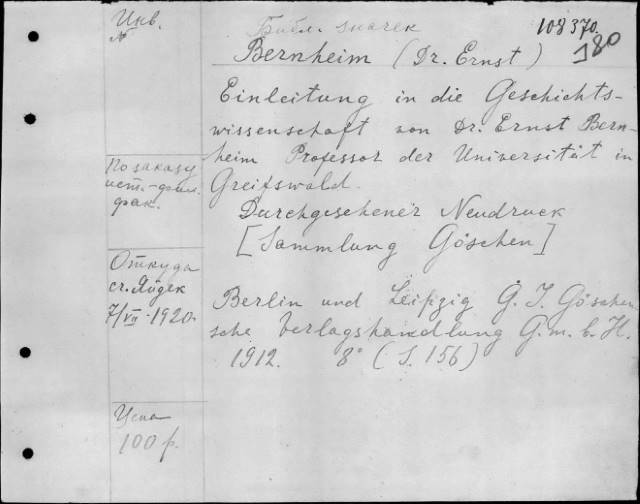 Инв.
№
Библ. значек
108370.
180
Bernheim (Dr. Ernst)
Einleitung in die Geschichts-
wissenschaft von Dr. Ernst Bern-
heim Professor der Universität in
Greifswald.
Durchgesehener Neudruck
[Sammlung Göschen]
Berlin und Leipzig G. J. Göschen
sche Verlagshandlung G.m.b.H.
1912. 8° (S. 156)
По заказу
ист.-фил.
фак.
Откуда
7/VII-1920.
Цена
100 р.